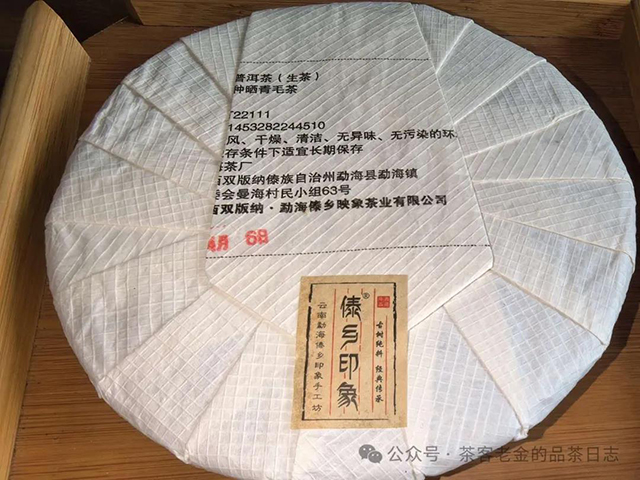 普洱茶（生茶）
种晒青毛茶
T22111
1453282244510
风、干燥、清洁、无异味、无污染的环
存条件下适宜长期保存
茶厂
双版纳傣族自治州勐海县勐海镇
委会曼海村民小组63号
双版纳·勐海傣乡映象茶业有限公司
4月 6日
傣乡印象®
古树纯料 经典传承
云南勐海傣乡印象手工坊
公众号·茶客老金的品茶日志